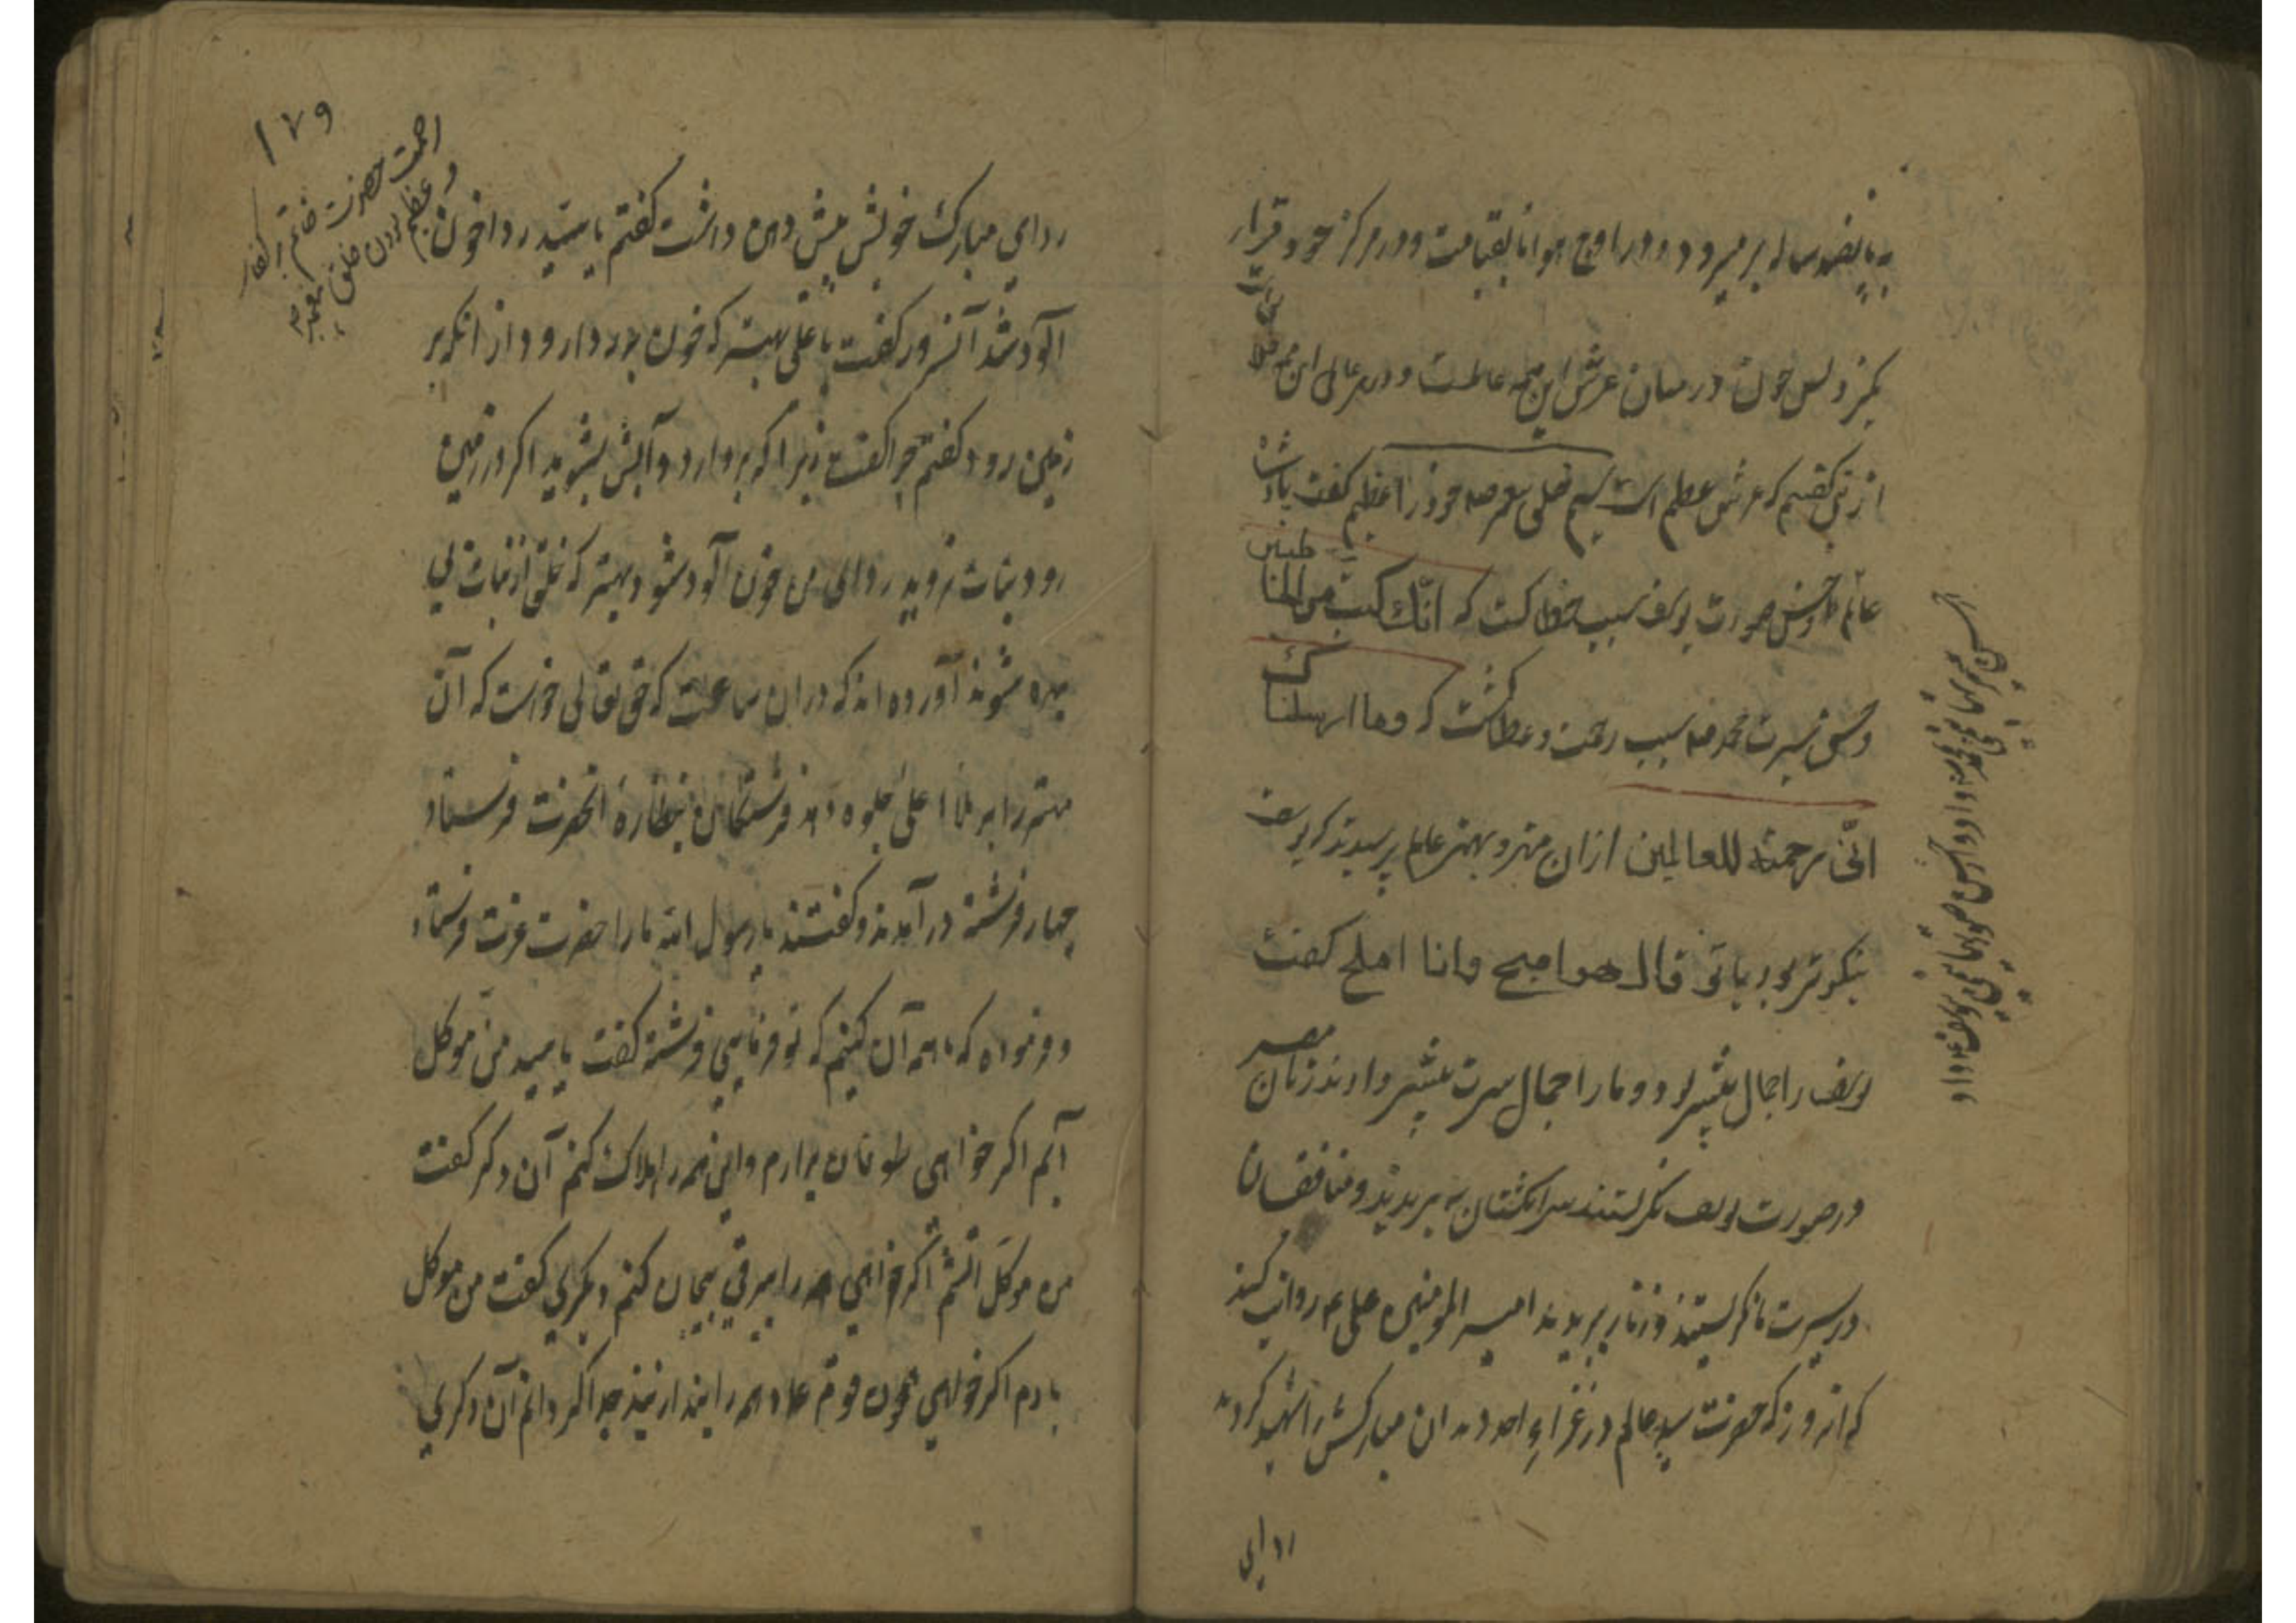 به پانصد ساله بر میرود و در اوج هوا تا بقیامت و در مرکز خود قرار
نکیرد پس چون در میان عرش این همه عالمست و در هر عالمی این همه
از تی گفتیم که عرش عظیم است پس خلق پیغمبر خود را عظیم گفت پادشاه
عالم حسن صورت یوسف سبب خطا کشت که انّک کنت من الخاطئین
و حسن سیرت محمد ص سبب رحمت و عطا کشت که وما ارسلناک
الّا رحمة للعالمین ازان مهتر و بهتر عالم پرسیدند که یوسف
نیکوتر بود یا تو قال هو اصبح وانا املح کفت
یوسف را جمال بیشتر بود و ما را جمال سیرت بیشتر دادند زنان مصر
در صورت یوسف نکریستند سر انکشتان ببریدند و منافقان
در سیرت ما نکریستند و زنار ببریدند امیر المومنین علی ع روایت کند
که انروز که حضرت سید عالم در غزاء احد دندان مبارکش را شهید کردند
ردای
ردای مبارک خویش پیش دهن داشت کفتم یا سید ردا خون
آلود شد آنسرور کفت یا علی بهتر که خون بر ردا رود از انکه بر
زمین رود کفتم چرا کفت زیرا که بردارد و آبش بشوید اکر در زمین
رود نبات نروید ردای من خون آلود شود بهتر که خلق از نبات بی
بهره شوند آورده اند که در ان ساعت که حق تعالی خواست که آن
مهتر را بر ملا اعلی جلوه دهد فرشتکان را بنظاره انحضرت فرستاد
چهار فرشته در آمدند و کفتند یا رسول الله ما را حضرت عزت فرستاد
و فرمود که ما همه آن کنیم که تو فرمایی فرشته کفت یا سید من موکل
آبم اکر خواهی طوفان برارم و این همه را هلاک کنم آن دکر کفت
من موکل آتشم اکر خواهی همه را ببرقی بیجان کنم دیکری کفت من موکل
بادم اکر خواهی چون قوم عاد همه را بیندازم آن دکری
۱۷۹
رحمت حضرت خاتم بر کفار
و عظیم بودن خلق پیغمبر ص